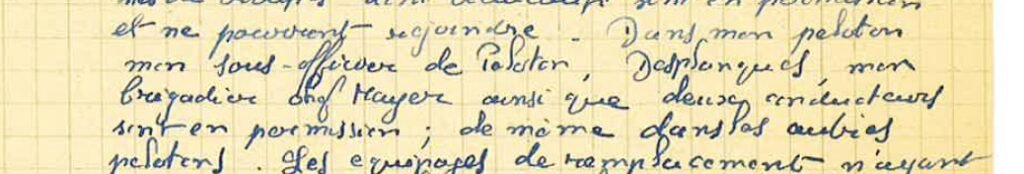 sont en permission
et ne pouvant rejoindre. Dans mon peloton
mon sous-officier de Peloton, Desplanques, mon
brigadier chef Mayer ainsi que deux conducteurs
sont en permission ; de même dans les autres
pelotons. Les equipages de remplacement n'ayant